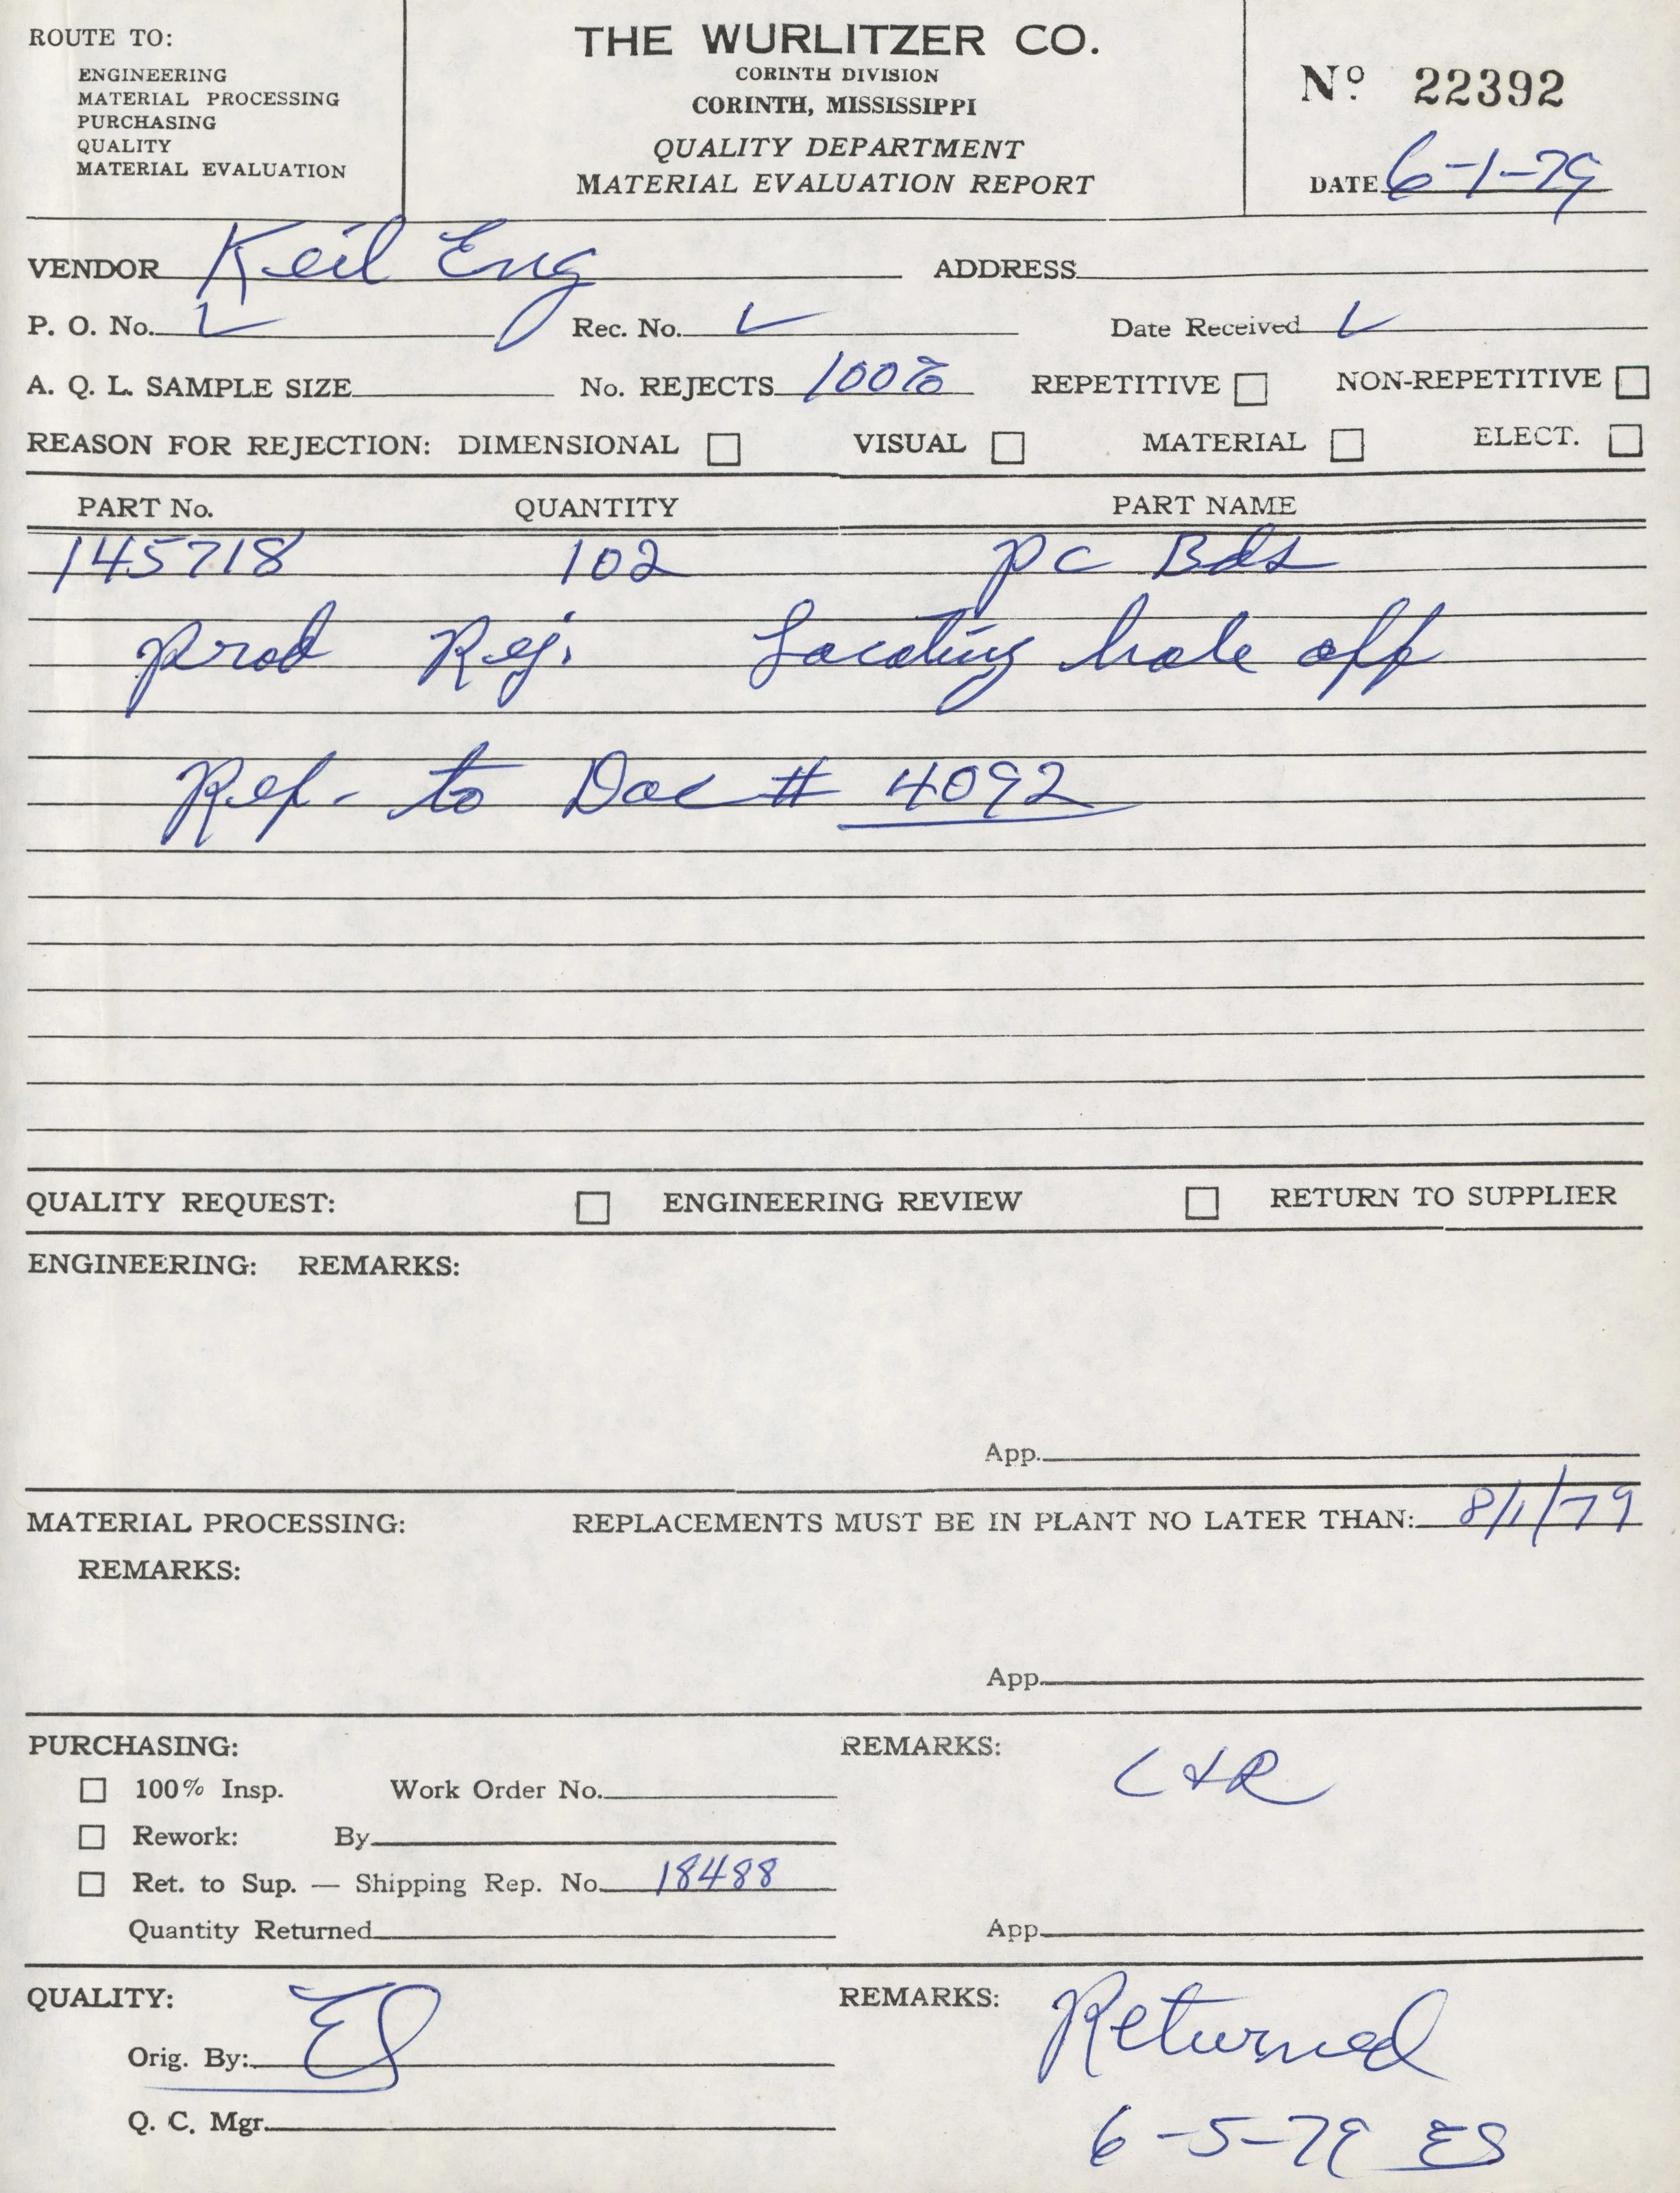 ROUTE TO:
ENGINEERING
MATERIAL PROCESSING
PURCHASING
QUALITY
MATERIAL EVALUATION
THE WURLITZER CO.
CORINTH DIVISION
CORINTH, MISSISSIPPI
QUALITY DEPARTMENT
MATERIAL EVALUATION REPORT
Nº 22392
DATE 6-1-79
VENDOR Keil Eng ADDRESS
P. O. No. Rec. No. Date Received
A. Q. L. SAMPLE SIZE No. REJECTS 100% REPETITIVE NON-REPETITIVE
REASON FOR REJECTION: DIMENSIONAL VISUAL MATERIAL ELECT.
PART No. QUANTITY PART NAME
145718 102 PC Bds
prod Rej. Locating hole off
Ref. to Doc # 4092
QUALITY REQUEST: ENGINEERING REVIEW RETURN TO SUPPLIER
ENGINEERING: REMARKS:
App.
MATERIAL PROCESSING: REPLACEMENTS MUST BE IN PLANT NO LATER THAN: 8/1/79
REMARKS:
App.
PURCHASING: REMARKS:
100% Insp. Work Order No. C+R
Rework: By
Ret. to Sup. — Shipping Rep. No. 18488
Quantity Returned App.
QUALITY: REMARKS: Returned
Orig. By: ES
Q. C. Mgr. 6-5-79 ES